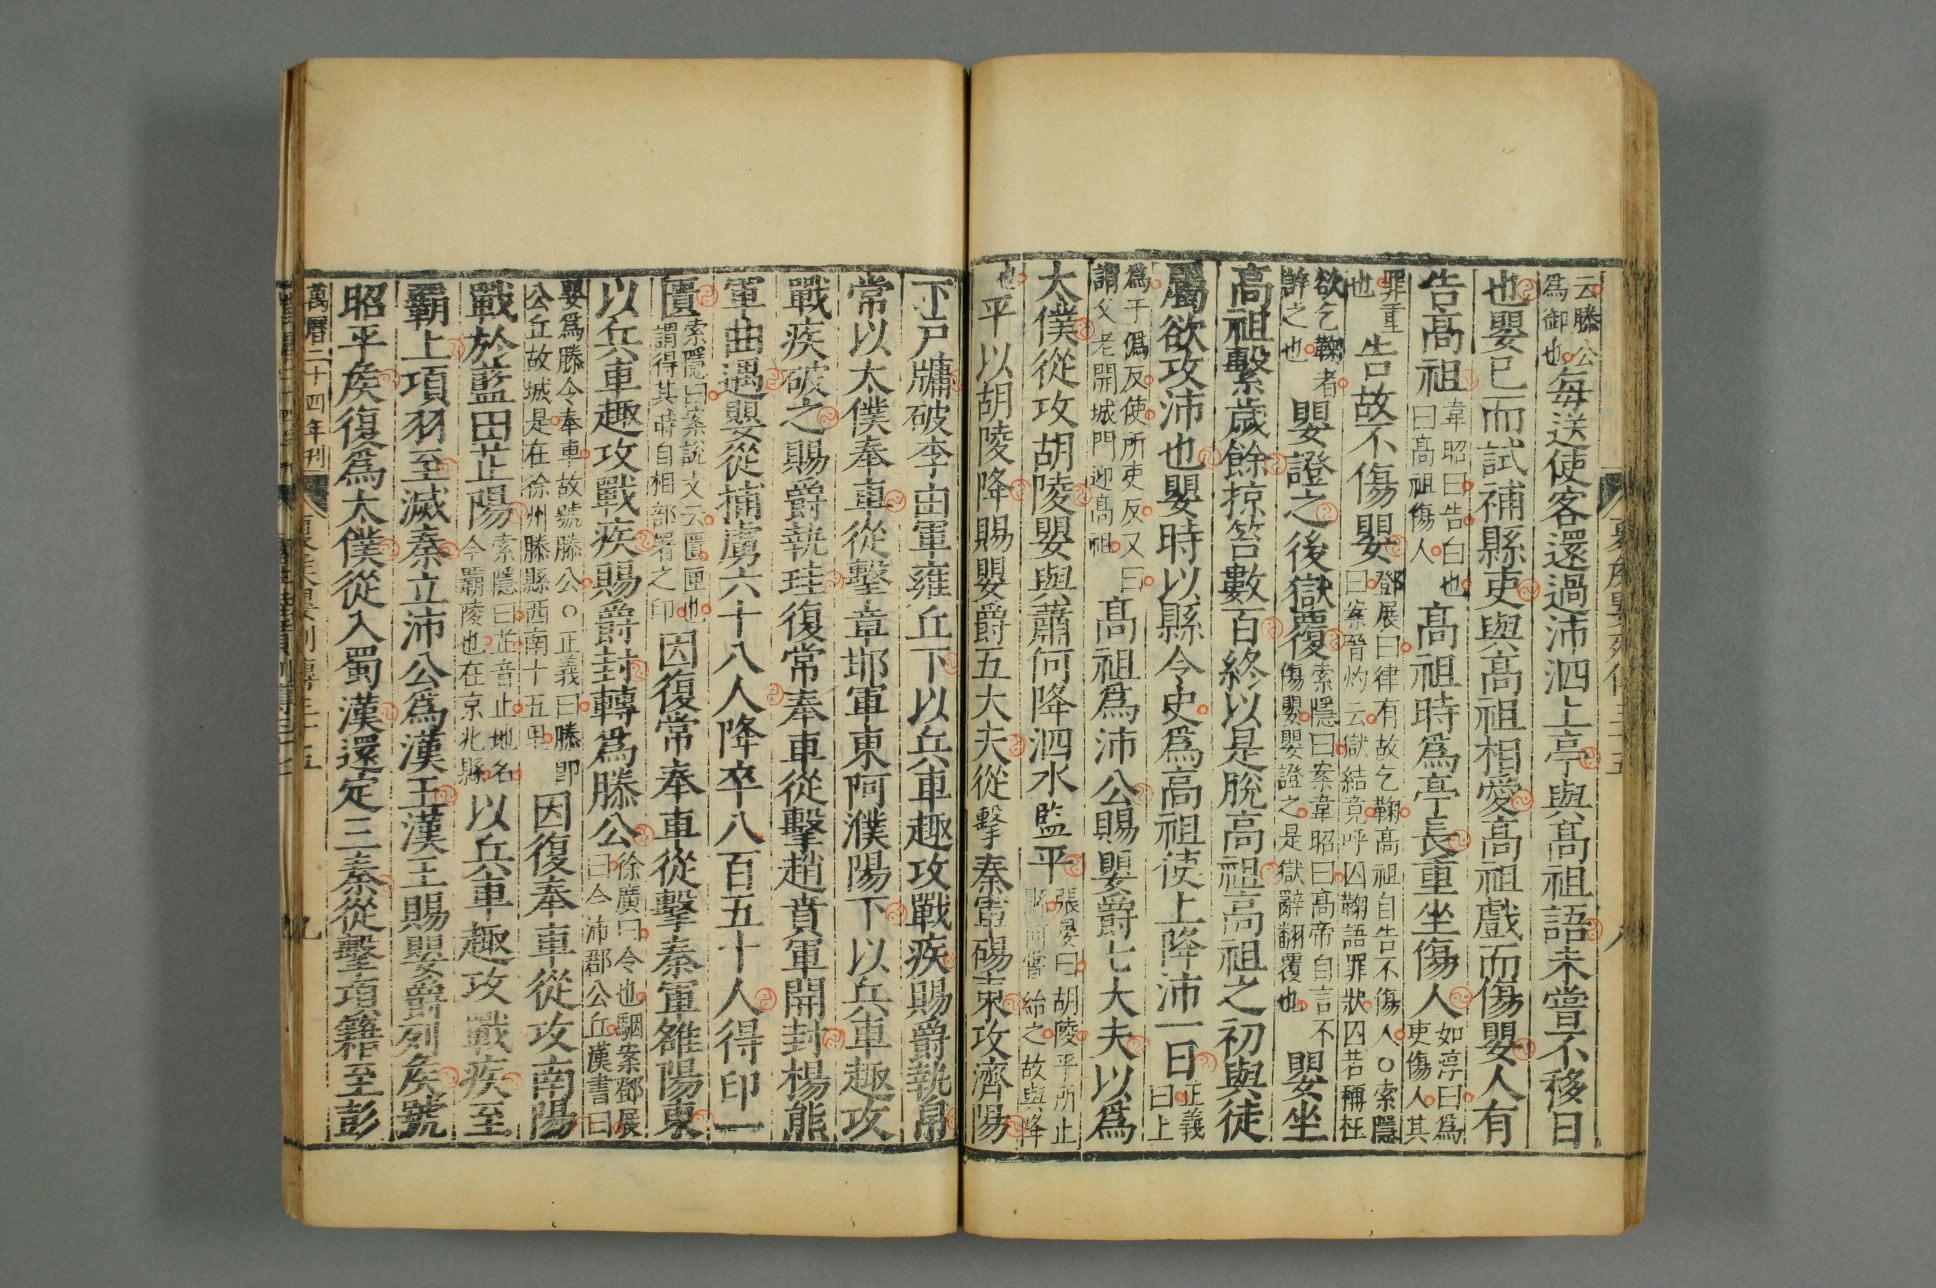 云滕公爲御也每送使客還過沛泗上亭與高祖語未嘗不移日
也嬰已而試補縣吏與高祖相愛高祖戲而傷嬰人有
告高祖韋昭曰告白也曰高祖傷人高祖時爲亭長重坐傷人如淳曰爲吏傷人其
罪重也告故不傷嬰鄧展曰律有故乞鞠高祖自告不傷人○索隱曰案晉灼云獄結竟呼囚鞠語罪狀囚若稱枉
欲乞鞠者許之也嬰證之後獄覆索隱曰案韋昭曰高帝自言不傷嬰嬰證之是獄辭翻覆也嬰坐
高祖繫歲餘掠笞數百終以是脫高祖高祖之初與徒
屬欲攻沛也嬰時以縣令史爲高祖使上降沛一日正義曰上
爲于僞反使所吏反又曰謂父老開城門迎高祖高祖爲沛公賜嬰爵七大夫以爲
太僕從攻胡陵嬰與蕭何降泗水監平張晏曰胡陵平所止縣何嘗紿之故與降
也平以胡陵降賜嬰爵五大夫從擊秦軍碭東攻濟陽
下戶牖破李由軍雍丘下以兵車趣攻戰疾賜爵執帛
常以太僕奉車從擊章邯軍東阿濮陽下以兵車趣攻
戰疾破之賜爵執珪復常奉車從擊趙賁軍開封楊熊
軍曲遇嬰從捕虜六十八人降卒八百五十人得印一
匱索隱曰案說文云匱匣也謂得其時自相部署之印因復常奉車從擊秦軍雒陽東
以兵車趣攻戰疾賜爵封轉爲滕公徐廣曰令也駰案鄧展曰今沛郡公丘漢書曰
嬰爲滕令奉車故號滕公○正義曰滕即公丘故城是在徐州滕縣西南十五里因復奉車從攻南陽
戰於藍田芷陽索隱曰芷音止地名今霸陵也在京兆縣以兵車趣攻戰疾至
霸上項羽至滅秦立沛公爲漢王漢王賜嬰爵列矦號
昭平矦復爲太僕從入蜀漢還定三秦從擊項籍至彭
萬曆二十四年刊